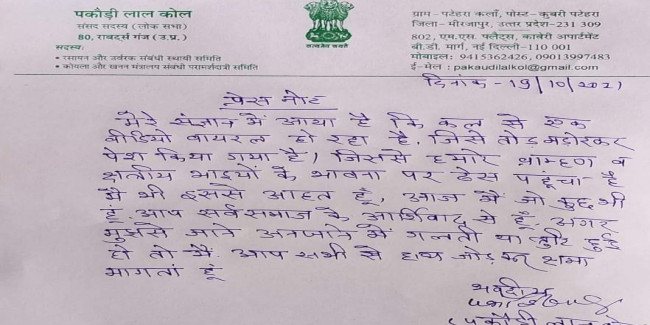 पकौड़ी लाल कोल
संसद सदस्य (लोक सभा)
80, राबर्ट्स गंज (उ.प्र.)
सदस्य:
• रसायन और उर्वरक संबंधी स्थायी समिति
• कोयला और खनन मंत्रालय संबंधी परामर्शदात्री समिति
सत्यमेव जयते
ग्राम - पटेहरा कलाँ, पोस्ट - कुबरी पटेहरा
जिला - मीरजापुर, उत्तर प्रदेश-231 309
802, एम.एस. फ्लैट्स, कावेरी अपार्टमेंट
बी.डी. मार्ग, नई दिल्ली-110 001
मोबाइल: 9415362426, 09013997483
ई-मेल : pakaudilalkol@gmail.com
दिनांक - 19/10/2021
प्रेस नोट
मेरे संज्ञान में आया है कि कल से एक
वीडियो वायरल हो रहा है, जिसे तोड़ मड़ोरकर
पेश किया गया है। जिससे हमारे ब्राम्हण व
क्षत्रीय भाइयों के भावना पर ठेस पहूंचा है
मैं भी इससे आहत हूँ, आज मैं जो कुछ भी
हूँ आप सर्वसमाज के आर्शिवाद से हूँ. अगर
मुझसे जाने अनजाने में गलती या त्रुटि हुई
हो तो मैं. आप सभी से हाथ जोड़कर क्षमा
मागतां हूँ
भवदीय
(पकौड़ी लाल